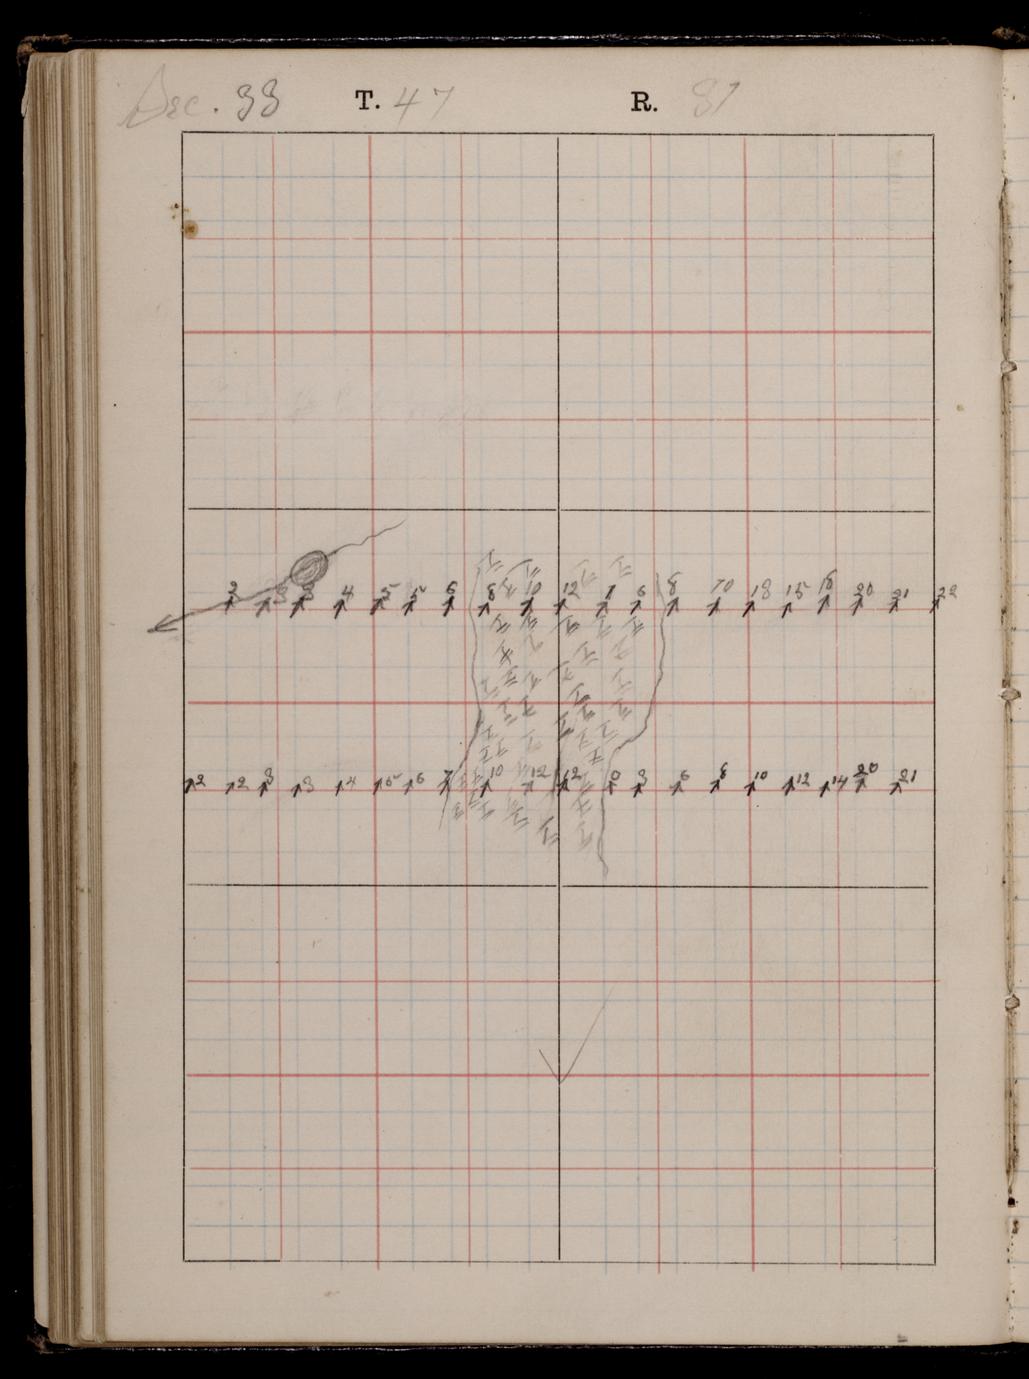 Sec. 33 T. 47 R. 31
2 3 3 4 5 5 6 8 10 12 7 6 8 10 18 15 16 20 21 22
2 2 3 3 4 5 6 7 10 12 12 0 3 6 8 10 12 14 20 21